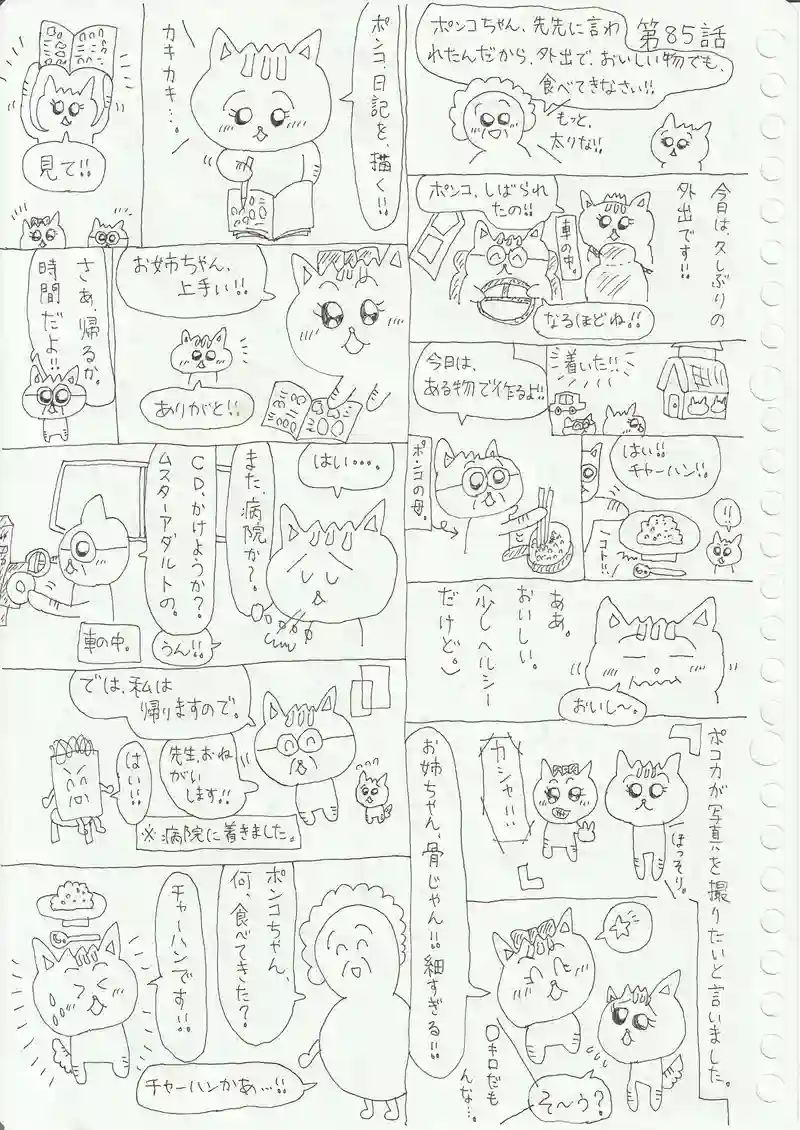 第85話
ポンコちゃん、先先に言わ
れたんだから、外出で、おいしい物でも、
食べてきなさい!!
もっと、
太りな!!
今日は、久しぶりの
外出です!!
車の中。
ポンコ、しばられ
たの!!
なるほどね!!
着いた!!
今日は、
ある物で作るよ!!
ポンコの母。
はい!!
チャーハン!!
コト!!
!!
ああ。
おいしい。
(少しヘルシー
だけど。)
おいし〜。
ポコカが写真を撮りたいと言いました。
ほっそり。
カシャ!!
お姉ちゃん、骨じゃん!!細すぎる!!
〇キロだも
んな…。
そ〜う?
ポンコ、日記を、描く!!
カキカキ…。
見て!!
お姉ちゃん、
上手い!!
ありがと!!
さぁ、帰るか。
時間だよ!!
はい…。
また、病院か?
CD、かけようか?
ムスターアダルトの。
うん!!
車の中。
では、私は
帰りますので。
先生、おね
がい
します!!
はい!!
※病院に着きました。
ポンコちゃん、
何、食べてきた?
チャーハンです!!
チャーハンかぁ…!!